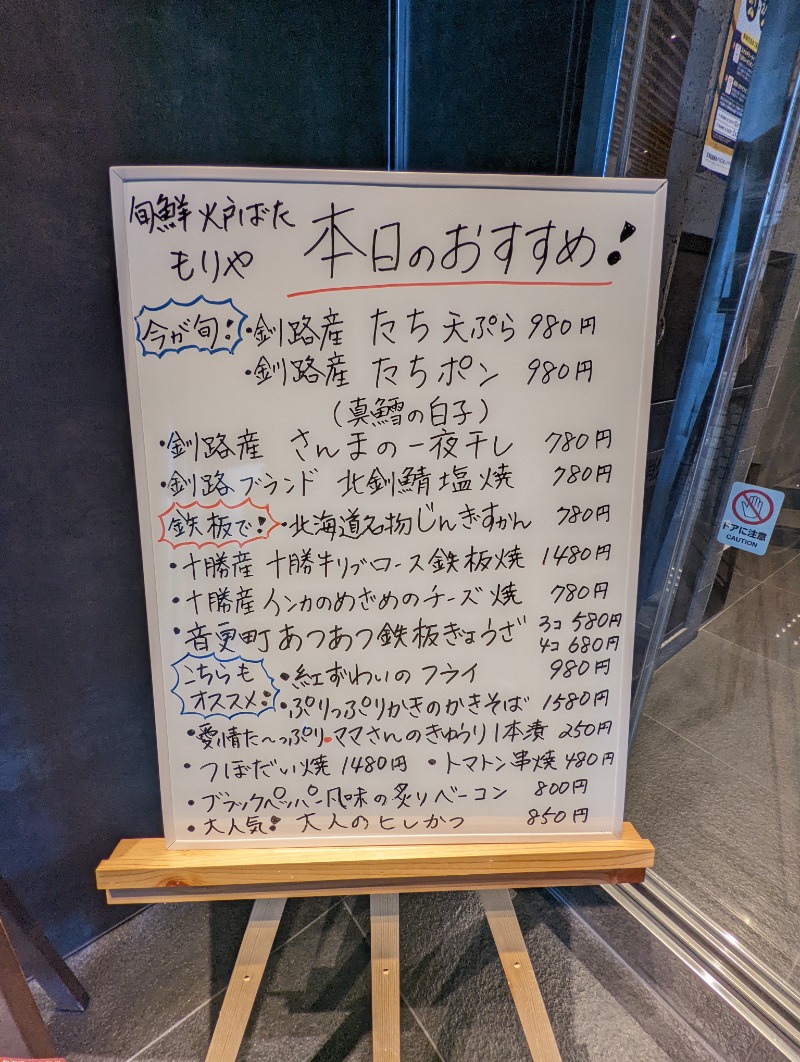 旬鮮 炉ばた
もりや
本日のおすすめ!
今が旬! ・釧路産 たち 天ぷら 980円
・釧路産 たちポン 980円
(真鱈の白子)
・釧路産 さんまの一夜干し 780円
・釧路ブランド 北釧鯖塩焼 780円
鉄板で! ・北海道名物じんぎすかん 780円
・十勝産 十勝牛リブロース鉄板焼 1480円
・十勝産インカのめざめのチーズ焼 780円
・音更町あつあつ鉄板ぎょうざ 3コ 580円
4コ 680円
こちらも
オススメ!
・紅ずわいのフライ 980円
・ぷりっぷりかきのかきそば 1580円
・愛情た〜っぷり ママさんのきゅうり1本漬 250円
・つぼだい焼 1480円 ・トマトン串焼 480円
・ブラックペッパー風味の炙りベーコン 800円
・大人気! 大人のヒレかつ 850円
ドアに注意
CAUTION